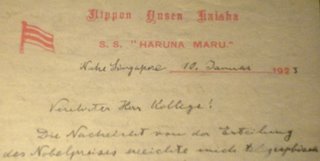 Nippon Yusen Kaisha
S. S. "HARUNA MARU."
Nahe Singapore 10. Januar 1923
Verehrter Herr Kollege!
Die Nachricht von der Erteilung
des Nobelpreises erreichte mich telegraphisch